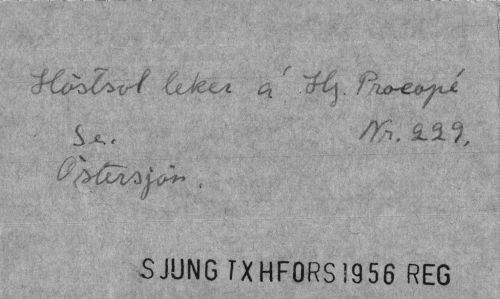 Höstsol leker á Hj. Procopé
Se. Nr. 229,
Östersjön.
SJUNG TXHFORS1956 REG